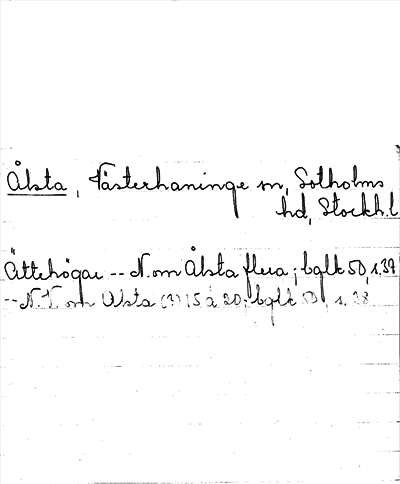 Ålsta, Västerhaninge sn, Sotholms
hd, Stockh.l
Ättehögar -- N. om Ålsta flera; bglk 50, s. 39
-- N.V om Ålsta (?) 15 à 20; bglk 50, s. 38